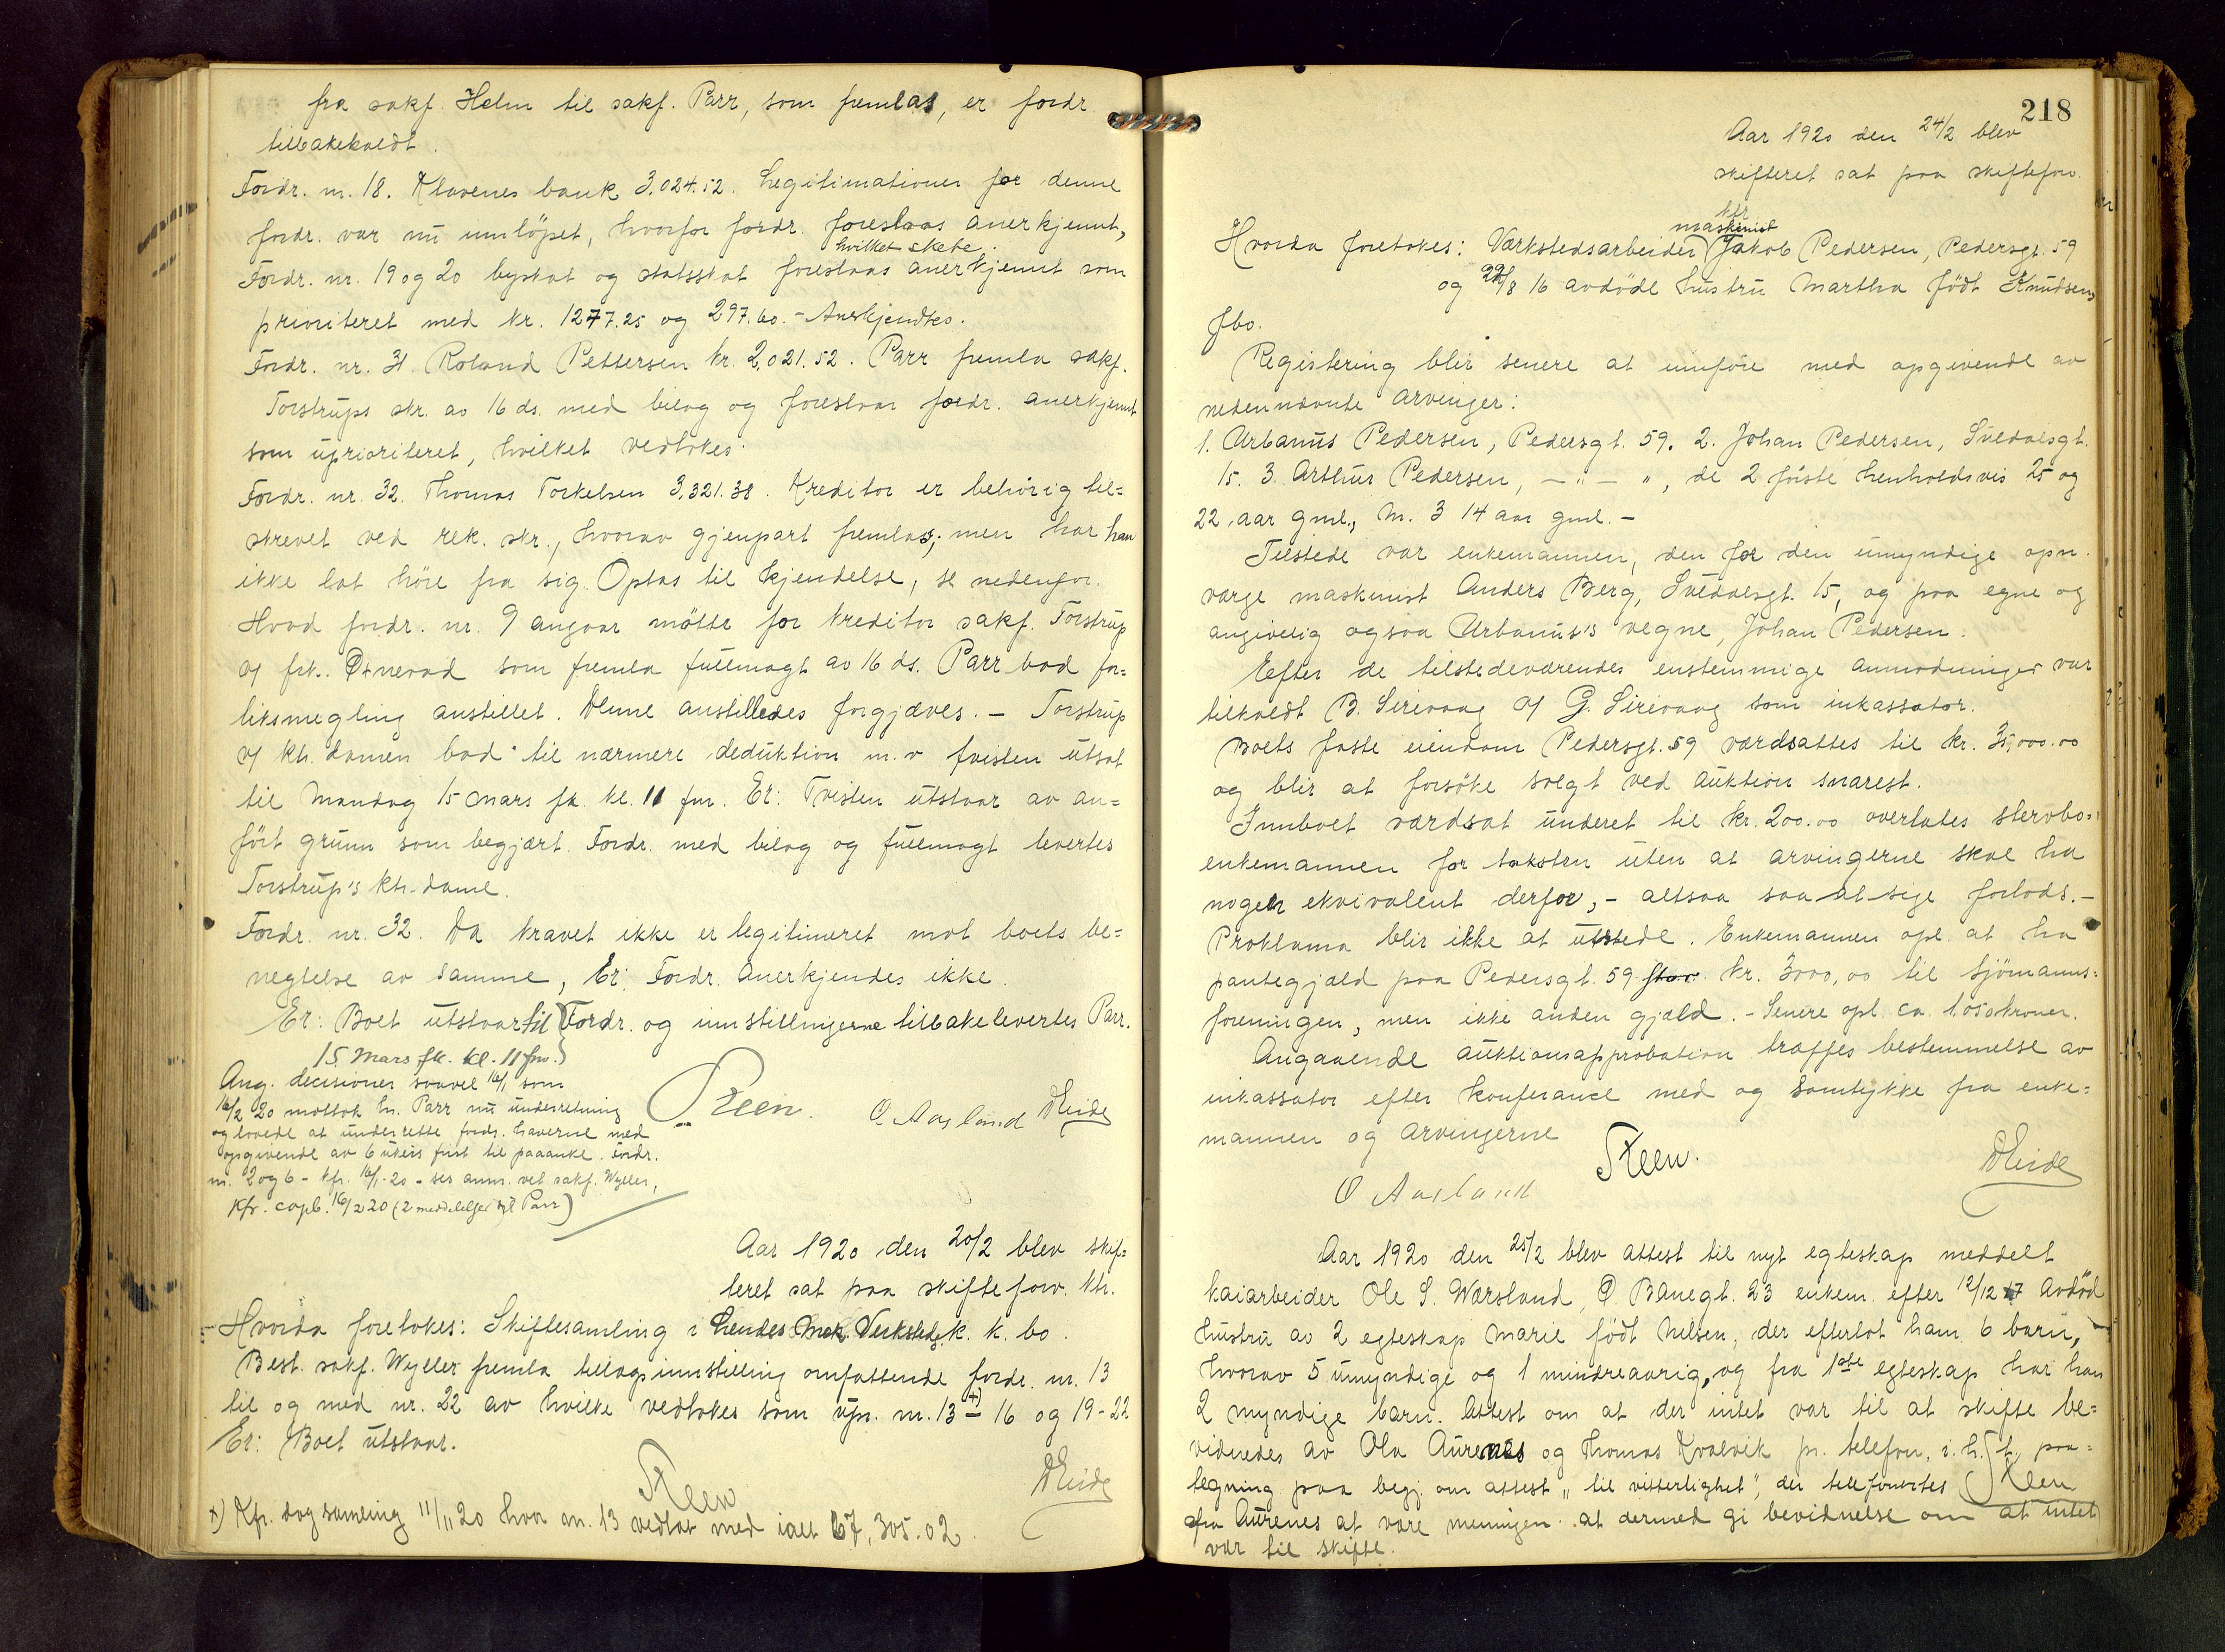 fra sakf. Helm til sakf. Parr, som fremlas, er fordr.
tilbakekaldt.
Fordr. nr. 18. Klavenes bank 3.024.52. Legitimationen for denne
fordr. var nu innløpet, hvorfor fordr. foreslaas anerkjennt,
hvilket skete.
Fordr. nr. 19 og 20 byskat og statsskat foreslaas anerkjennt som
prioriteret med kr. 1277.25 og 297.60. - Anerkjendtes.
Fordr. nr. 31. Roland Pettersen kr. 2,021.52. Parr fremla sakf.
Torstrups skr. av 16 ds. med bilag og foreslaar fordr. anerkjennt
som uprioriteret, hvilket vedtokes.
Fordr. nr. 32. Thomas Torkelsen 3,321.38. Kreditor er behörig til=
skrevet ved rek. skr., hvorav gjenpart fremlas; men har han
ikke lat höre fra sig. Optas til kjendelse, se nedenfor.
Hvad fordr. nr. 9 angaar mötte for kreditor sakf. Torstrup
v/ frk. Øxnevad som fremla fullmagt av 16 ds. Parr bad for=
liksmegling anstillet. Denne anstilledes forgjæves. - Torstrup
v/ ktr. damen bad til nærmere deduktion m. v. tvisten utsat
til Mandag 15 Mars fk. kl. 11 fm. Er: Tvisten utstaar av an=
fört grunn som begjært. Fordr. med bilag og fullmagt levertes
Torstrup's ktr-dame.
Fordr. nr. 32. Da kravet ikke er legitimeret mot boets be=
negtelse av samme, Er: Fordr. anerkjendes ikke.
Er: Boet utstaar til Fordr. og innstillingerne tilbakelevertes Parr.
15 Mars fk. kl. 11 fm.
Ang. decisioner saavel 16/1 som
16/2 20 mottok hr. Parr nu underretning
og lovede at underrette fordr. haverne med
opgivende av 6 ukers frist til paaanke. Fordr.
nr. 2 og 6 - kfr. 16/1-20 - ses anm. vet sakf. Wyller,
Kfr. copb. 16/2 20 (2 meddelelser til Parr)
Steen. O Aasland DEide
Aar 1920 den 20/2 blev skif=
teret sat paa skifteforv. ktr.
Hvorda foretokes: Skiftesamling i Hendes Mek. Verksteds k. k. bo.
Best. sakf. Wyller fremla tillægsinnstilling omfattende fordr. nr. 13
til og med nr. 22 av hvilke vedtokes som upr. nr. 13 +) - 16 og 19-22
Er: Boet utstaar.
Steen DEide
x) Kfr. dog samling 11/11 20 hvor nr. 13 vedtat med ialt 67,305.02.
218
Aar 1920 den 24/2 blev
skifteret sat paa skifteforv.
kfr
maskinist
Hvorda foretokes: Værkstedsarbeider Jakob Pedersen, Pedersgt. 59
og 29/8 16 avdöde hustru Martha födt Knudsens
fbo.
Registering blir senere at innföre med opgivende av
nedennævnte arvinger:
1. Urbanus Pedersen, Pedersgt. 59. 2. Johan Pedersen, Svedalsgt.
15. 3. Arthur Pedersen, - " - ", de 2 förste henholdsvis 25 og
22 aar gml., nr. 3 14 aar gml. -
Tilstede var enkemannen, den for den umyndige opn.
værge maskinist Anders Berg, Svedalsgt. 15, og paa egne og
angivelig ogsaa Urbanus's vegne, Johan Pedersen.
Efter de tilstedeværendes enstemmige anmodninger var
tilkaldt B. Sirevaag v/ G. Sirevaag som inkassator.
Boets faste eiendom Pedersgt. 59 værdsattes til kr. 35,000.00
og blir at forsöke solgt ved auktion snarest.
Innboet værdsat underet til kr. 200.00 overlates stervbo-
enkemannen for taksten uten at arvingerne skal ha
nogen ekvivalent derfor, - altsaa saa-at-sige forlods. -
Proklama blir ikke at utstede. Enkemannen opl. at ha
pantegjæld paa Pedersgt. 59 stor kr. 3000,00 til Sjömanns=
foreningen, men ikke anden gjæld. - Senere opl. ca. 1.050 kroner.
Angaaende auktionsapprobation træffes bestemmelse av
inkassator efter konferance med og samtykke fra enke=
mannen og arvingerne
Steen. DEide
O Aasland
Aar 1920 den 25/2 blev attest til nyt egteskap meddelt
kaiarbeider Ole S. Warsland, Ø. Banegt. 23 enkem. efter 12/12 17 avdöd
hustru av 2 egteskap Marie födt Nilsen, der efterlot ham 6 barn,
hvorav 5 umyndige og 1 mindreaarig, og fra 1ste egteskap har han
2 myndige barn. Attest om at der intet var til at skifte be=
vidnedes av Ola Aurenes og Thomas Kvalvik pr. telefon, i. h. t. paa=
tegning paa begj. om attest "til vitterlighet", der telefonertes Steen
fra Aurenes at være meningen at dermed gi bevidnelse om at intet
var til skifte.